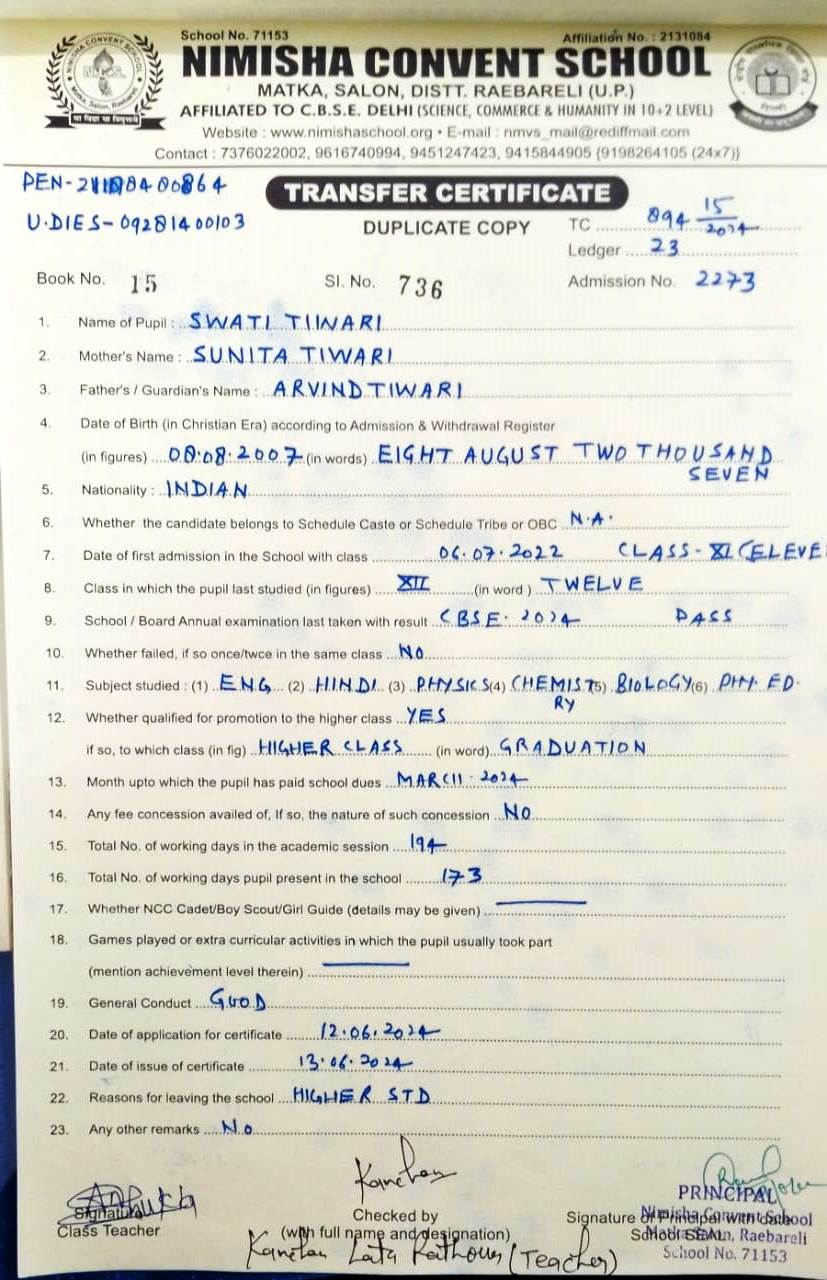 School No. 71153 Affiliation No. : 2131084
NIMISHA CONVENT SCHOOL
MATKA, SALON, DISTT. RAEBARELI (U.P.)
AFFILIATED TO C.B.S.E. DELHI (SCIENCE, COMMERCE & HUMANITY IN 10+2 LEVEL)
Website : www.nimishaschool.org • E-mail : nmvs_mail@rediffmail.com
Contact : 7376022002, 9616740994, 9451247423, 9415844905 {9198264105 (24x7)}
TRANSFER CERTIFICATE
U.DIES-09281400103 DUPLICATE COPY TC 894 15/2024
Ledger 23
Book No. 15 Sl. No. 736 Admission No. 2273
1. Name of Pupil : SWATI TIWARI
2. Mother's Name : SUNITA TIWARI
3. Father's / Guardian's Name : ARVIND TIWARI
4. Date of Birth (in Christian Era) according to Admission & Withdrawal Register
(in figures) 08.08.2007 (in words) EIGHT AUGUST TWO THOUSAND
SEVEN
5. Nationality : INDIAN
6. Whether the candidate belongs to Schedule Caste or Schedule Tribe or OBC N.A.
7. Date of first admission in the School with class 06.07.2022 CLASS-XI (ELEVE
8. Class in which the pupil last studied (in figures) XII (in word ) TWELVE
9. School / Board Annual examination last taken with result CBSE. 2024 PASS
10. Whether failed, if so once/twce in the same class NO
11. Subject studied : (1) ENG (2) HINDI (3) PHYSICS (4) CHEMIST (5) BIOLOGY (6) PHY. ED.
RY
12. Whether qualified for promotion to the higher class YES
if so, to which class (in fig) HIGHER CLASS (in word) GRADUATION
13. Month upto which the pupil has paid school dues MARCH. 2024
14. Any fee concession availed of, If so, the nature of such concession NO
15. Total No. of working days in the academic session 194
16. Total No. of working days pupil present in the school 173
17. Whether NCC Cadet/Boy Scout/Girl Guide (details may be given)
18. Games played or extra curricular activities in which the pupil usually took part
(mention achievement level therein)
19. General Conduct GOOD
20. Date of application for certificate 12.06.2024
21. Date of issue of certificate 13.06.2024
22. Reasons for leaving the school HIGHER STD
23. Any other remarks No
Kanchan
PRINCIPAL
Signature Checked by Signature of Principal with date Nimisha Convent School
Class Teacher (with full name and designation) School SEAL Matka Salon, Raebareli
Kanchan Lata Rathour (Teacher) School No. 71153